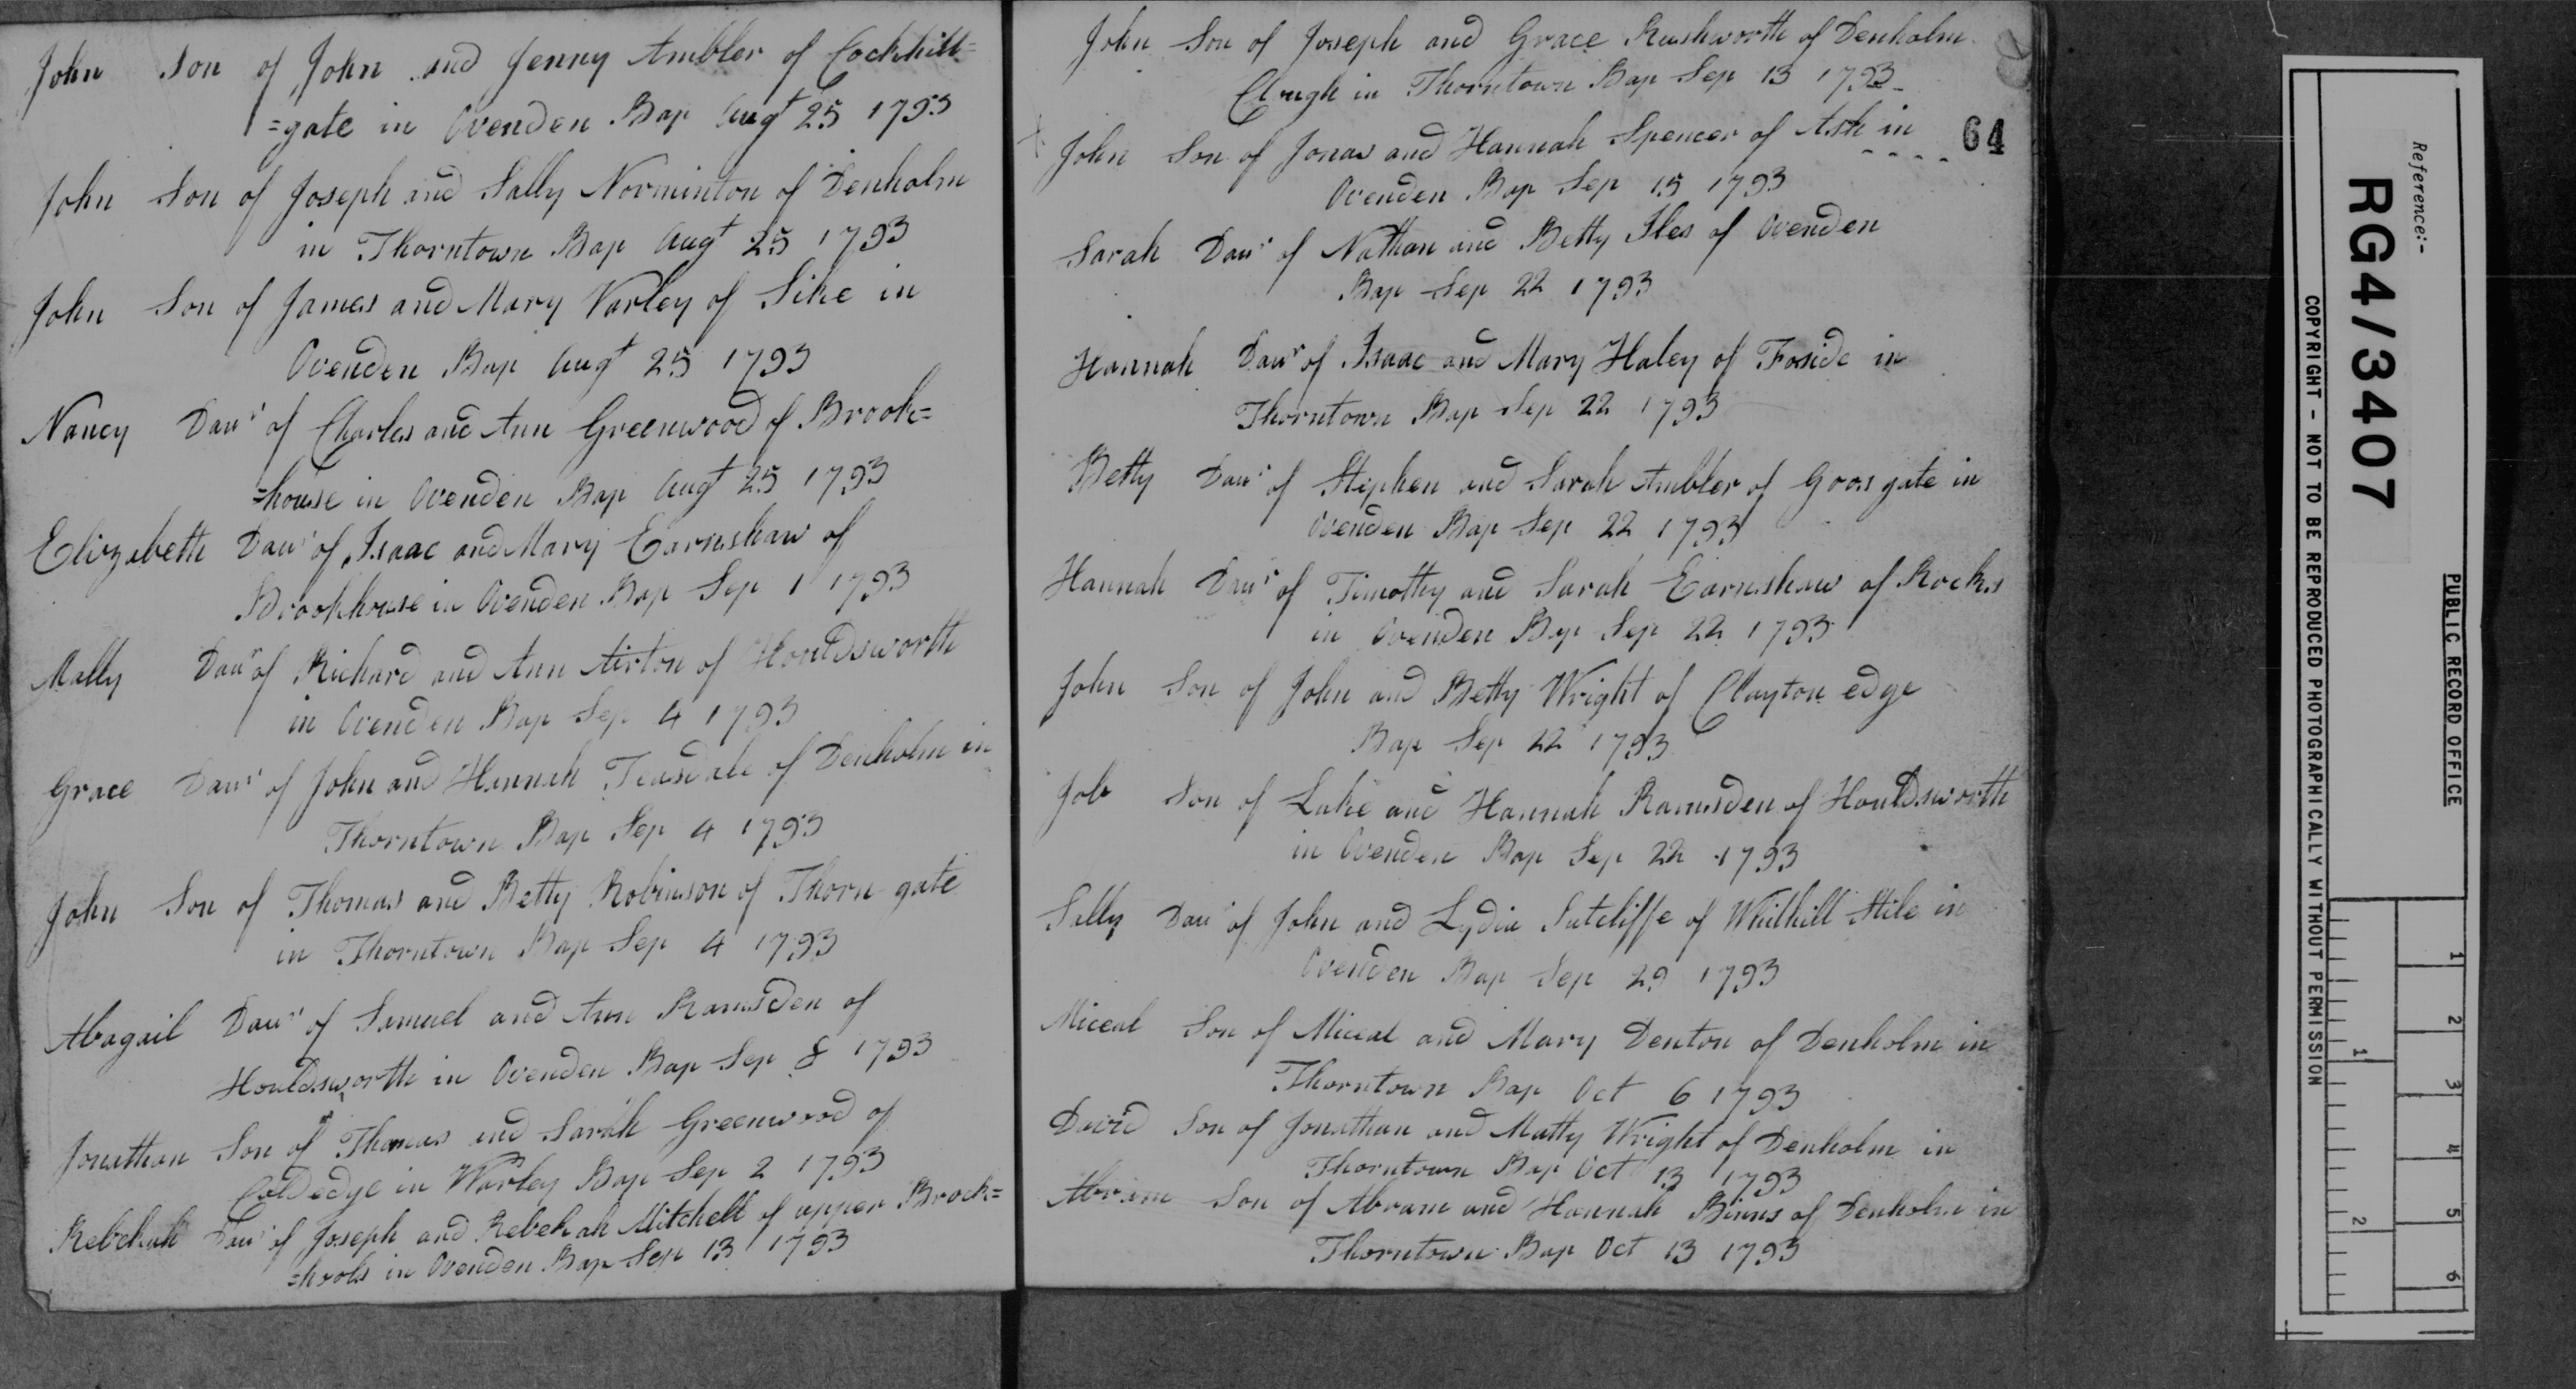 John Son of John and Jenny Ambler of Cockhill=
=gate in Ovenden Bap Augt 25 1793
John Son of Joseph and Sally Norminton of Denholm
in Thorntown Bap Augt 25 1793
John Son of James and Mary Varley of Sike in
Ovenden Bap Augt 25 1793
Nancy Daur of Charles and Ann Greenwood of Brook=
=house in Ovenden Bap Augt 25 1793
Elizabeth Daur of Isaac and Mary Earnshaw of
Brookhouse in Ovenden Bap Sep 1 1793
Mally Daur of Richard and Ann Airton of Houldsworth
in Ovenden Bap Sep 4 1793
Grace Daur of John and Hannah Teasdale of Denholm in
Thorntown Bap Sep 4 1793
John Son of Thomas and Betty Robinson of Thorn gate
in Thorntown Bap Sep 4 1793
Abagail Daur of Samuel and Ann Ramsden of
Houldsworth in Ovenden Bap Sep 8 1793
Jonathan Son of Thomas and Sarah Greenwood of
Cold edge in Warley Bap Sep 2 1793
Rebekah Daur of Joseph and Rebekah Mitchell of upper Brock=
=hools in Ovenden Bap Sep 13 1793
John Son of Joseph and Grace Rushworth of Denholm
Clough in Thorntown Bap Sep 13 1793
64
John Son of Jonas and Hannah Spencer of Ask in
Ovenden Bap Sep 15 1793
Sarah Daur of Nathan and Betty Iles of Ovenden
Bap Sep 22 1793
Hannah Daur of Isaac and Mary Haley of Foside in
Thorntown Bap Sep 22 1793
Betty Daur of Stephen and Sarah Ambler of Goos gate in
Ovenden Bap Sep 22 1793
Hannah Daur of Timothy and Sarah Earnshaw of Rocks
in Ovenden Bap Sep 22 1793
John Son of John and Betty Wright of Clayton edge
Bap Sep 22 1793
Job Son of Luke and Hannah Ramsden of Houldsworth
in Ovenden Bap Sep 22 1793
Sally Daur of John and Lydia Sutcliffe of Whithill Stile in
Ovenden Bap Sep 29 1793
Miceal Son of Miceal and Mary Denton of Denholm in
Thorntown Bap Oct 6 1793
David Son of Jonathan and Matty Wright of Denholm in
Thorntown Bap Oct 13 1793
Abram Son of Abram and Hannah Binns of Denholm in
Thorntown Bap Oct 13 1793
PUBLIC RECORD OFFICE
Reference:-
RG4/3407
COPYRIGHT - NOT TO BE REPRODUCED PHOTOGRAPHICALLY WITHOUT PERMISSION
1 2 3 4 5 6
1 2